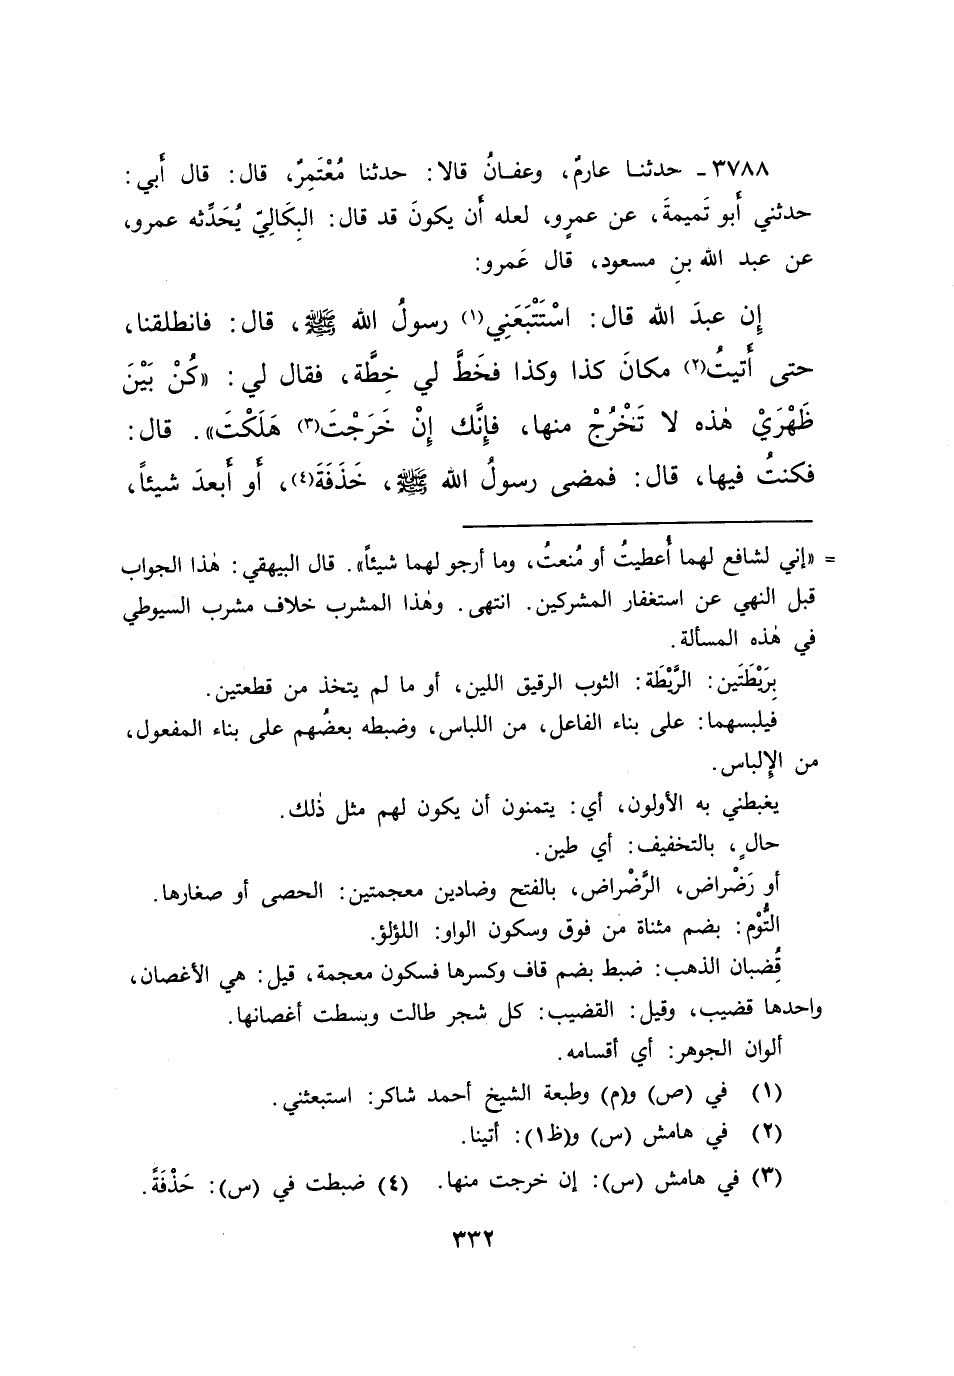 ٣٧٨٨ ـ حدثنـا عارمٌ، وعفـانُ قالا: حدثنا مُعْتَمِرٌ، قال: قال أَبي:
حدثني أَبو تَميمةَ، عن عمرٍو، لعله أَن يكونَ قد قال: البِكَاليّ يُحَدِّثه عمرو،
عن عبد الله بنِ مسعود، قال عَمرو:
إِن عبدَ الله قال: اسْتَتْبَعَنِي(١) رسولُ الله ﷺ، قال: فانطلقنا،
حتى أَتيتُ(٢) مكانَ كذا وكذا فخَطَّ لي خِطَّة، فقال لي: «كُنْ بَيْنَ
ظَهْرَيْ هٰذه لا تَخْرُجْ منها، فإِنَّك إِنْ خَرَجْتَ(٣) هَلَكْتَ». قال:
فكنتُ فيها، قال: فمضى رسولُ الله ﷺ، خَذَفَةَ(٤)، أَو أَبعدَ شيئاً،
= «إني لشافع لهما أُعطيتُ أو مُنعتُ، وما أرجو لهما شيئاً». قال البيهقي: هٰذا الجواب
قبل النهي عن استغفار المشركين. انتهى. وهٰذا المشرب خلاف مشرب السيوطي
في هٰذه المسألة.
بِرَيْطَتَين: الرَّيْطَة: الثوب الرقيق اللين، أو ما لم يتخذ من قطعتين.
فيلبسهما: على بناء الفاعل، من اللباس، وضبطه بعضُهم على بناء المفعول،
من الإِلباس.
يغبطني به الأولون، أي: يتمنون أن يكون لهم مثل ذٰلك.
حالٍ، بالتخفيف: أي طين.
أو رَضْراض، الرَّضْراض، بالفتح وضادين معجمتين: الحصى أو صغارها.
التُّوْم: بضم مثناة من فوق وسكون الواو: اللؤلؤ.
قُضِبان الذهب: ضبط بضم قاف وكسرها فسكون معجمة، قيل: هي الأغصان،
واحدها قضيب، وقيل: القضيب: كل شجر طالت وبسطت أغصانها.
ألوان الجوهر: أي أقسامه.
(١) في (ص) و(م) وطبعة الشيخ أحمد شاكر: استبعثني.
(٢) في هامش (س) و(ظ١): أتينا.
(٣) في هامش (س): إن خرجت منها. (٤) ضبطت في (س): حَذْفَةً.
٣٣٢